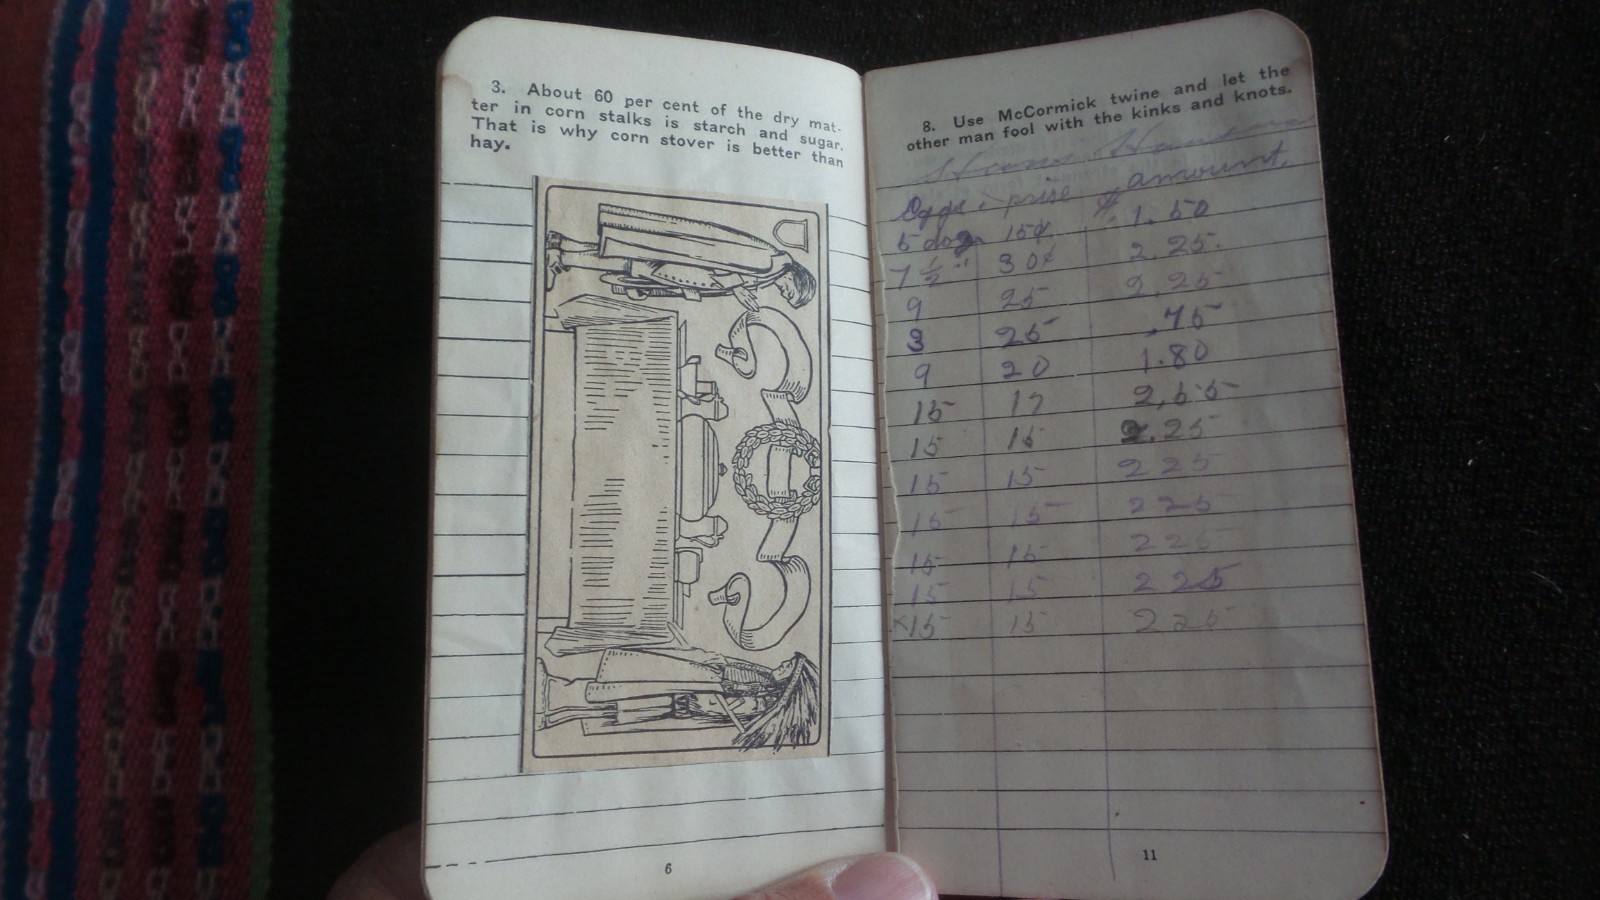 3. About 60 per cent of the dry mat-
ter in corn stalks is starch and sugar.
That is why corn stover is better than
hay.
6
8. Use McCormick twine and let the
other man fool with the kinks and knots.
Eggs. prise $. amount.
5 doz. 15¢ 1.50
7 1/2 " 30¢ 2.25.
9 25 2,25
3 25 .75
9 20 1.80
15 17 2,55
15 15 2.25
15 15 225
15 15 225
15 15 225
15 15 225
x15 15 225
11